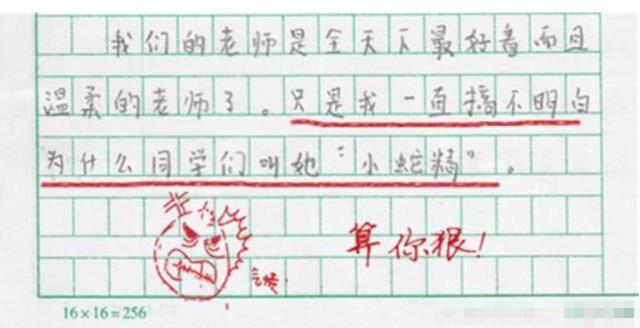 我们的老师是全天下最好看而且
温柔的老师了。只是我一直搞不明白
为什么同学们叫她“小蛇精”。
算你狠!
16×16=256